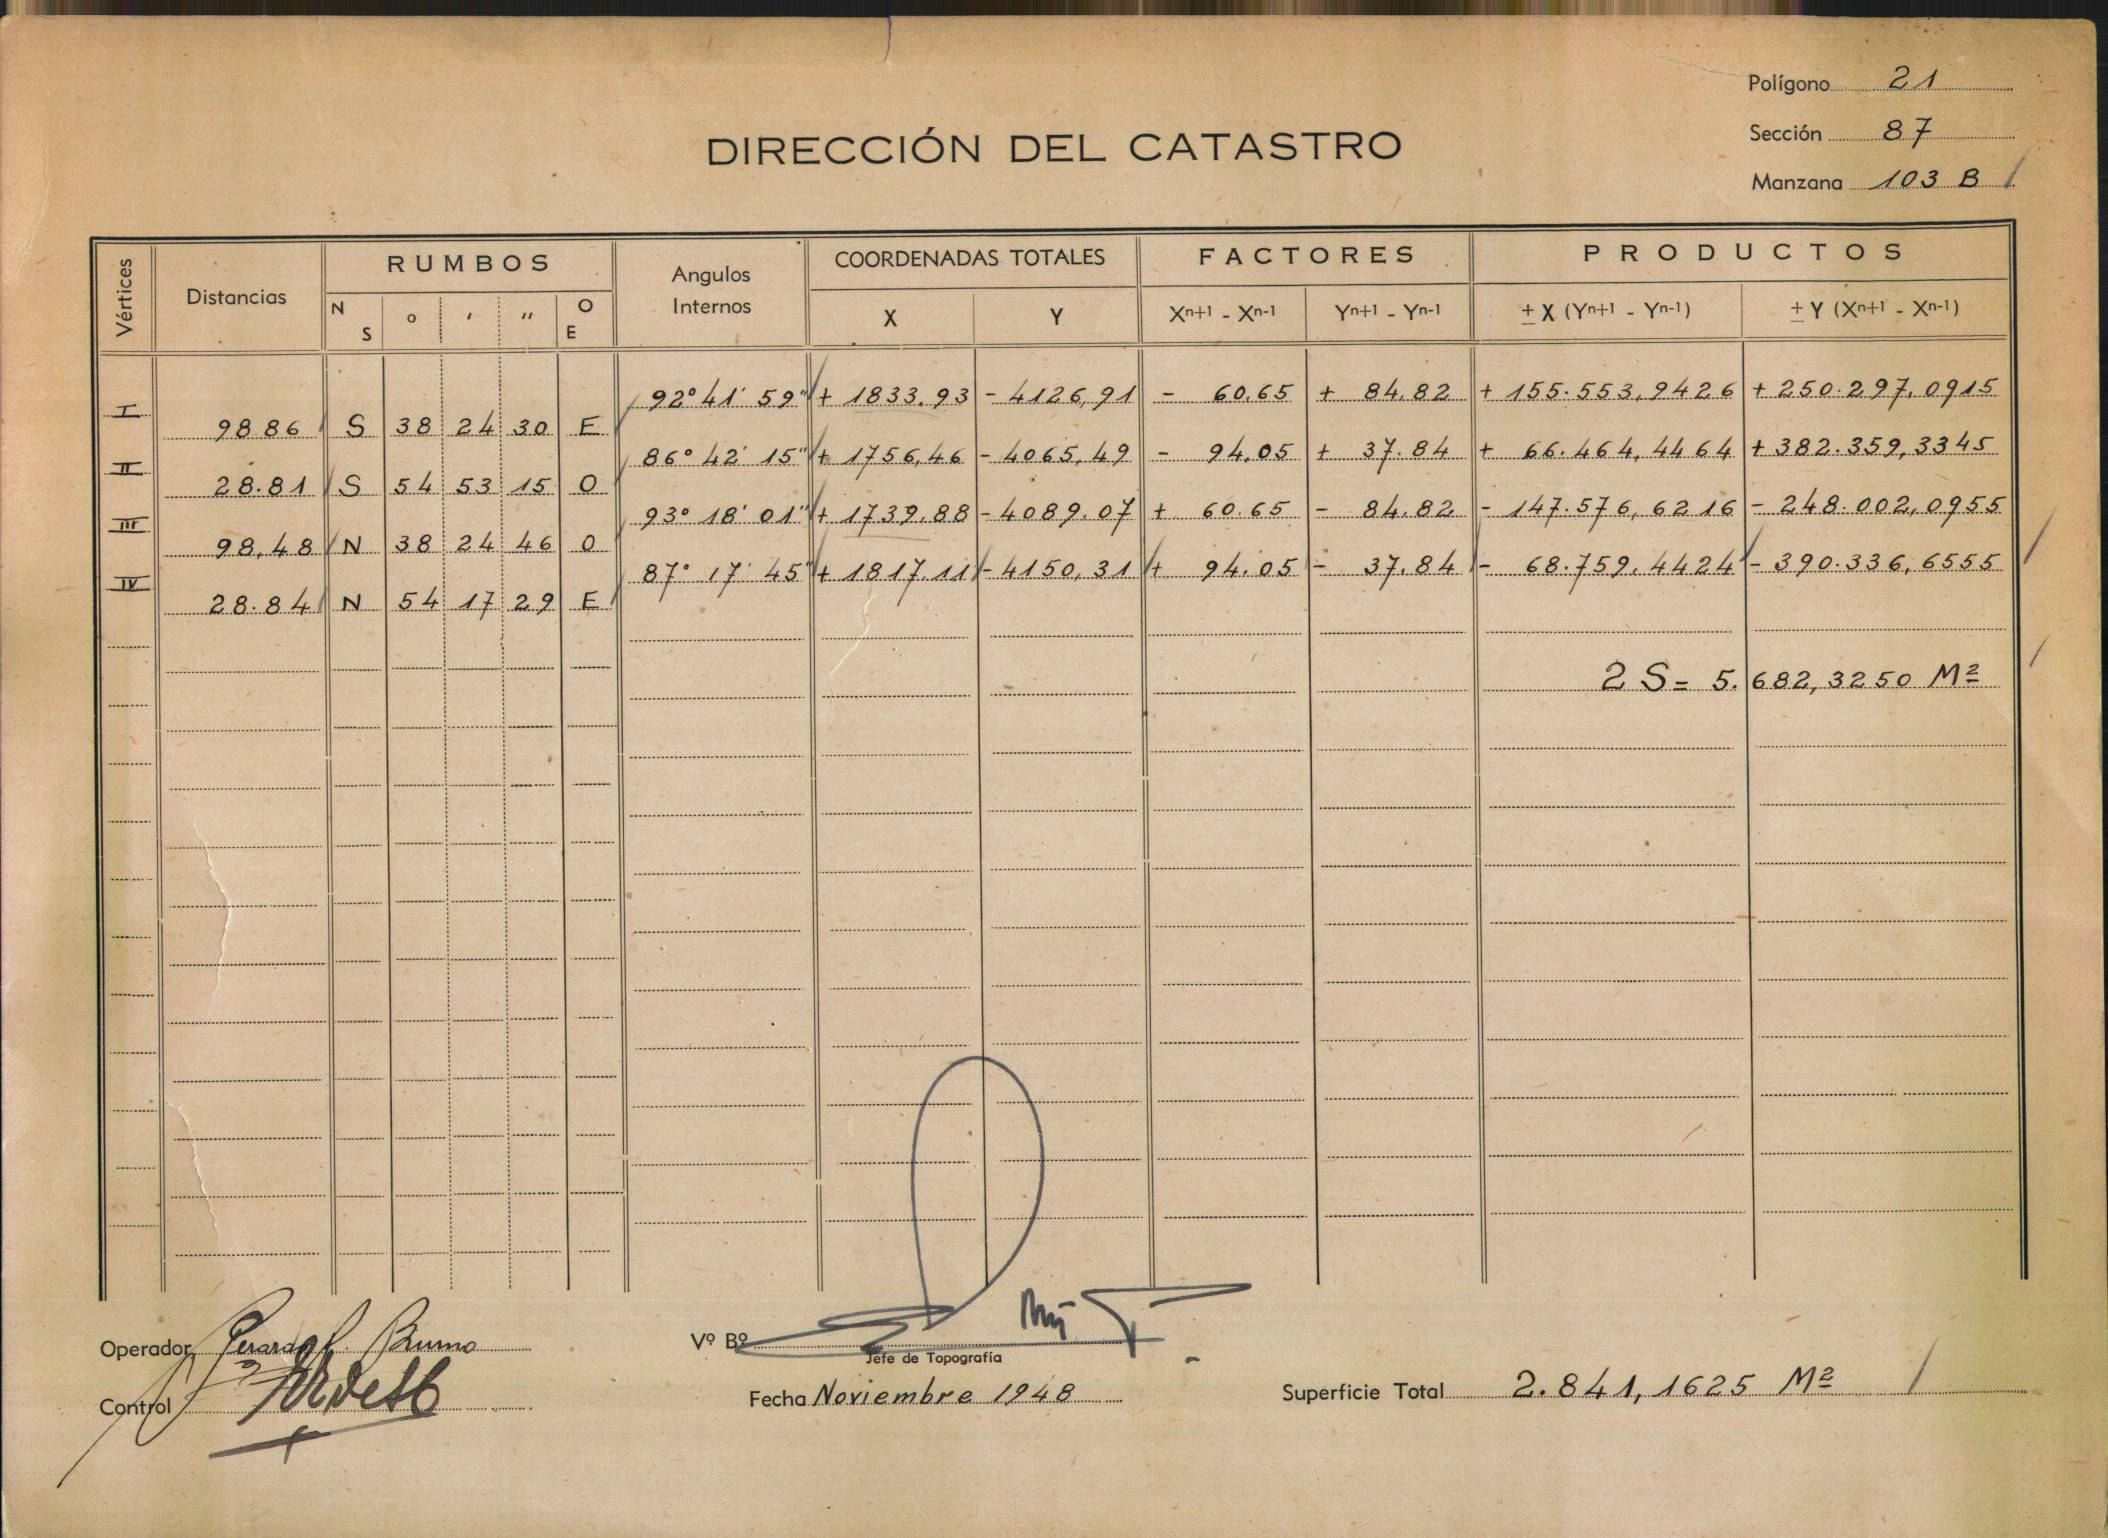 Polígono 21
Sección 87
Manzana 103 B
DIRECCIÓN DEL CATASTRO
Vértices Distancias RUMBOS Angulos Internos COORDENADAS TOTALES FACTORES PRODUCTOS
N S ° ′ ″ O E X Y Xn+1 - Xn-1 Yn+1 - Yn-1 ± X (Yn+1 - Yn-1) ± Y (Xn+1 - Xn-1)
92° 41' 59" + 1833.93 - 4126,91 - 60.65 + 84.82 + 155.553,9426 + 250.297,0915
I 98.86 S 38 24 30 E
86° 42' 15" + 1756,46 - 4065,49 - 94.05 + 37.84 + 66.464,4464 + 382.359,3345
II 28.81 S 54 53 15 O
93° 18' 01" + 1739.88 - 4089.07 + 60.65 - 84.82 - 147.576,6216 - 248.002,0955
III 98,48 N 38 24 46 O
87° 17' 45" + 1817.11 - 4150,31 + 94.05 - 37.84 - 68.759,4424 - 390.336,6555
IV 28.84 N 54 17 29 E
2 S = 5.682,3250 M²
Operador Bruno
Vº Bº
Jefe de Topografía
Control
Fecha Noviembre 1948
Superficie Total 2.841,1625 M²